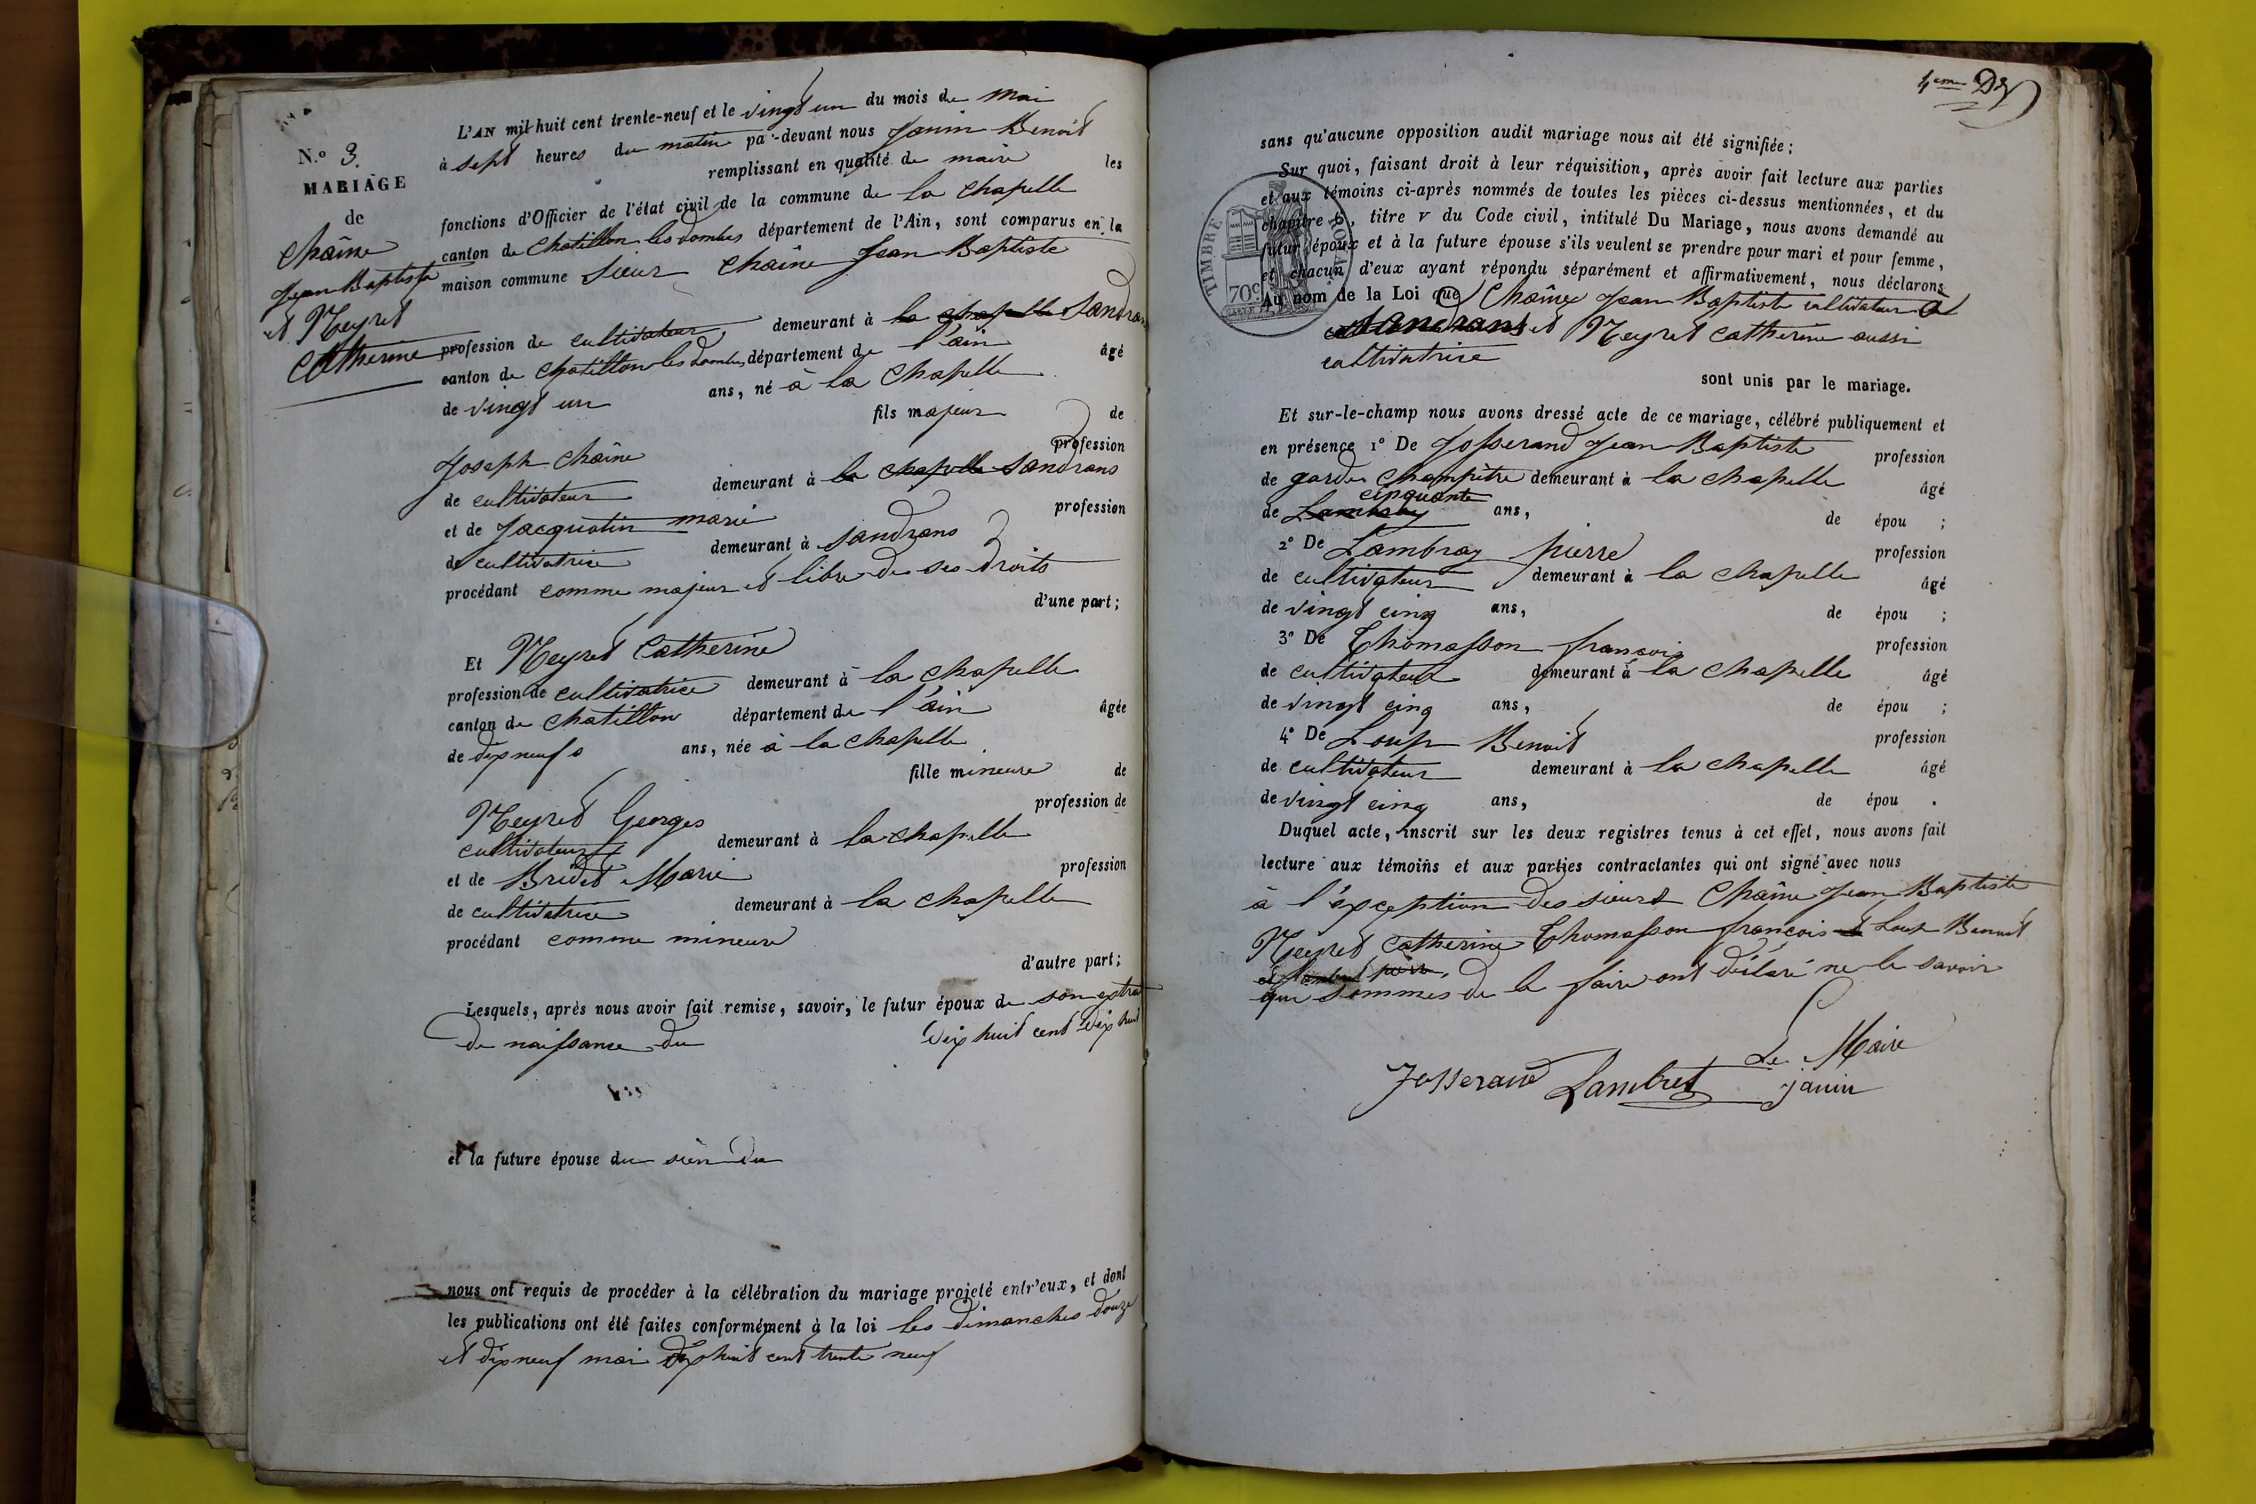 N.º 3.
MARIAGE
de
Chaîne
Jean Baptiste
et Neyret
Catherine
L'AN mil huit cent trente-neuf et le vingt un du mois de Mai
à sept heures du matin pa-devant nous Janin Benoit
remplissant en qualité de maire les
fonctions d'Officier de l'état civil de la commune de la Chapelle
canton de Chatillon les dombes département de l'Ain, sont comparus en la
maison commune sieur Chaîne Jean Baptiste
profession de cultivateur demeurant à la chapelle Sandrans
canton de Chatillon les dombes département de l'ain âgé
de vingt un ans, né à la Chapelle
fils majeur de
Joseph Chaîne profession
de cultivateur demeurant à la chapelle Sandrans
et de Jacquotin marie profession
de cultivatrice demeurant à Sandrans
procédant comme majeur et libre de ses droits
d'une part;
Et Neyret Catherine
profession de cultivatrice demeurant à la Chapelle
canton de Chatillon département de l'ain âgée
de dix neuf ans, née à la Chapelle
fille mineure de
Neyret Georges profession de
cultivateur demeurant à la Chapelle
et de Bridet Marie profession
de cultivatrice demeurant à la Chapelle
procédant comme mineure
d'autre part;
Lesquels, après nous avoir fait remise, savoir, le futur époux de son extrait
de naissance du dix huit cent dix huit
et la future épouse du sien du
nous ont requis de procéder à la célébration du mariage projeté entr'eux, et dont
les publications ont été faites conformément à la loi les dimanches douze
et dix neuf mai dix huit cent trente neuf
sans qu'aucune opposition audit mariage nous ait été signifiée;
Sur quoi, faisant droit à leur réquisition, après avoir fait lecture aux parties
et aux témoins ci-après nommés de toutes les pièces ci-dessus mentionnées, et du
chapitre 6, titre v du Code civil, intitulé Du Mariage, nous avons demandé au
futur époux et à la future épouse s'ils veulent se prendre pour mari et pour femme,
et chacun d'eux ayant répondu séparément et affirmativement, nous déclarons
TIMBRE ROYAL
70c
Au nom de la Loi que Chaîne Jean Baptiste cultivateur a
Sandrans et Neyret Catherine aussi
cultivatrice
sont unis par le mariage.
Et sur-le-champ nous avons dressé acte de ce mariage, célébré publiquement et
en présence 1º De Josserand Jean Baptiste profession
de garde Champêtre demeurant à la Chapelle âgé
de Lambray cinquante ans, de épou ;
2º De Lambray pierre profession
de cultivateur demeurant à la Chapelle âgé
de vingt cinq ans, de épou ;
3º De Thomasson françois profession
de cultivateur demeurant à la Chapelle âgé
de vingt cinq ans, de épou ;
4º De Loup Benoit profession
de cultivateur demeurant à la Chapelle âgé
de vingt cinq ans, de épou .
Duquel acte, inscrit sur les deux registres tenus à cet effet, nous avons fait
lecture aux témoins et aux parties contractantes qui ont signé avec nous
à l'exception des sieurs Chaîne Jean Baptiste
Neyret Catherine Thomasson françois et Loup Benoit
que sommés de le faire ont déclaré ne le savoir
Le Maire
Josserand Lambret Janin